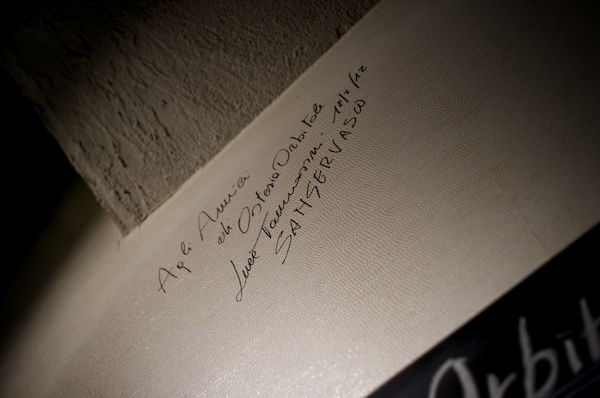 Agli Amici
di Osteria Orbitale
Luca Tommassini. 10/2/12
SAMSERVASCO
Orbit